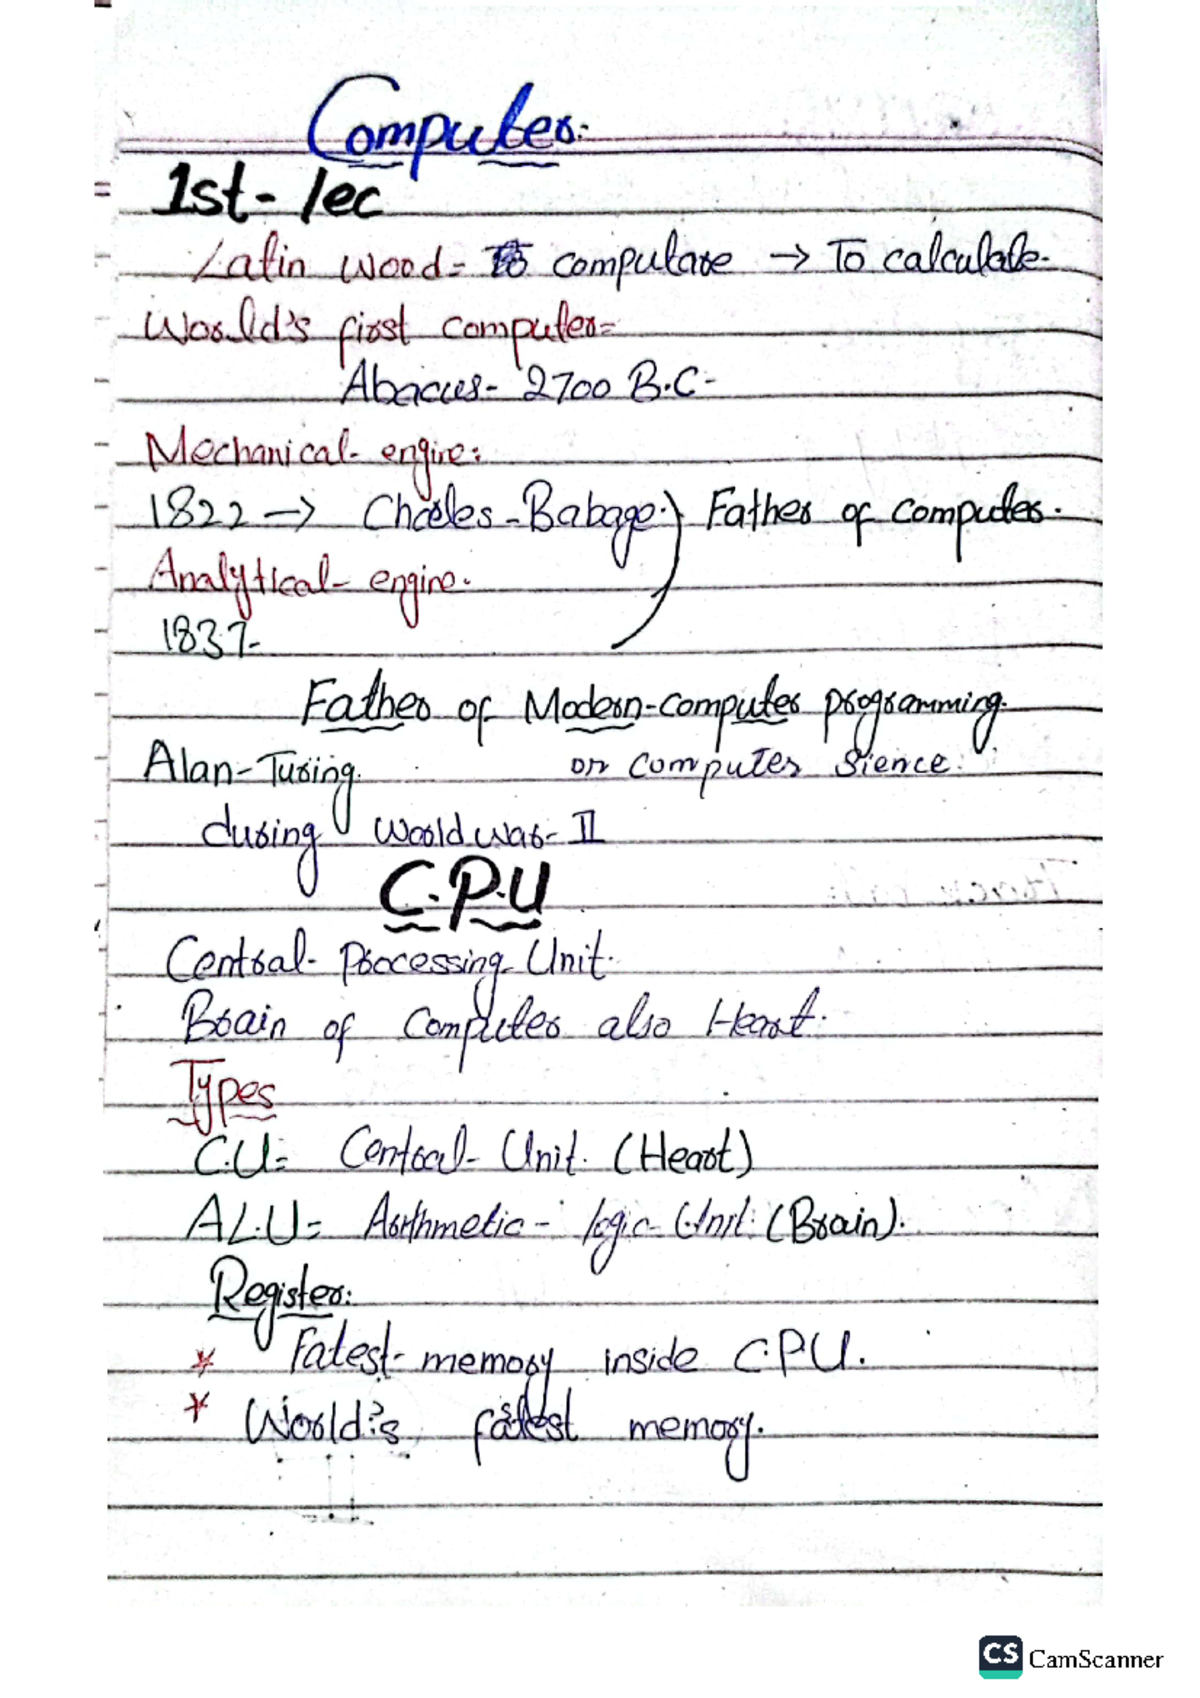 Computer.
1st- lec
Latin word = computare → To calculate.
World's first computer=
Abacus- 2700 B.C-
Mechanical- engine:
1822 → Charles-Babage.) Father of computer.
Analytical- engine.
1837-
Father of Modern-computer programming.
Alan-Turing. or computer Sience.
during World war- II
C.P.U
Central- Processing Unit.
Brain of Computer also Heart.
Types
C.U= Control- Unit. (Heart)
A.L.U= Arthmetic- logic- Unit: (Brain).
Register:
* Fatest- memory inside C.P.U.
* World's fastest memory.
CS CamScanner